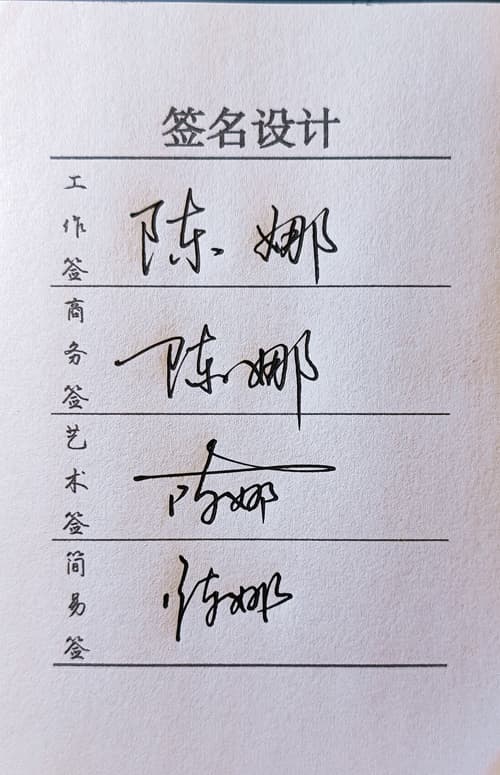 签名设计
工作签 陈娜
商务签 陈娜
艺术签 陈娜
简易签 陈娜